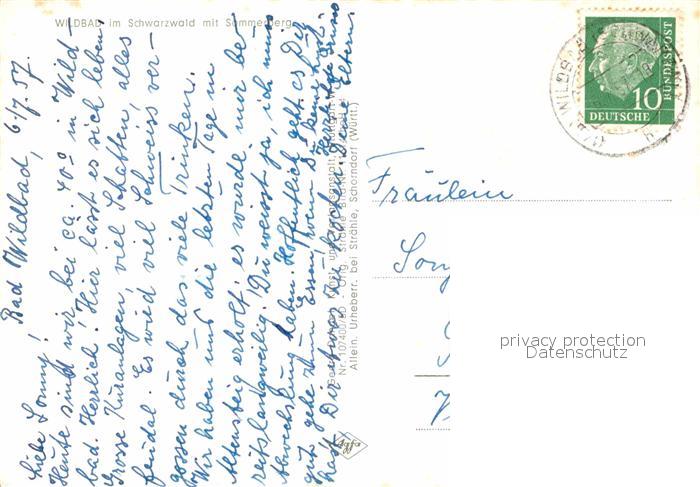 WILDBAD im Schwarzwald mit Sommerberg
Bad Wildbad, 6./7. 57.
Liebe Sonny!
Heute sind wir bei ca. 40° in Wild-
bad. Herrlich! Hier lässt es sich leben.
Grosse Kuranlagen, viel Schatten, alles
feudal. Es wird viel Schweiss ver-
gossen durch das viele Trinken.
Wir haben uns die letzten Tage in
Altensteig erholt, es wurde mir be-
reits langweilig! Du weisst ja, ich muss
Abwechslung haben. Hoffentlich geht es Dir
gut, gehe zum Essen, wenn Du keine Lust
hast Dir etwas zu kochen. Deine Eltern.
Herzl.
Nr. 107400/
Orig. Strähle
Allein. Urheberr. bei Strähle, Schorndorf (Württ.)
Agfa
10
DEUTSCHE
BUNDESPOST
WILDBAD
Fräulein
privacy protection
Datenschutz